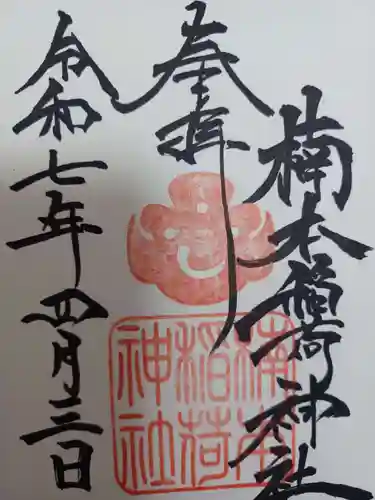 奉拝
楠本稲荷神社
令和七年四月三日
楠本
稲荷
神社